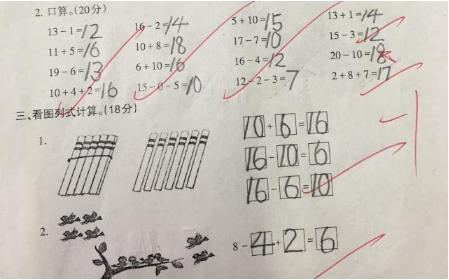 2. 口算。(20分)
13－1=12 16－2=14 5＋10=15 13＋1=14
11＋5=16 10＋8=18 17－7=10 15－3=12
19－6=13 6＋10=16 16－4=12 20－10=18
10＋4＋2=16 15－0－5=10 12－2－3=7 2＋8＋7=17
三、看图列式计算。(18分)
1.
10＋6=16
16－10=6
16－6=10
2.
8－4＋2=6